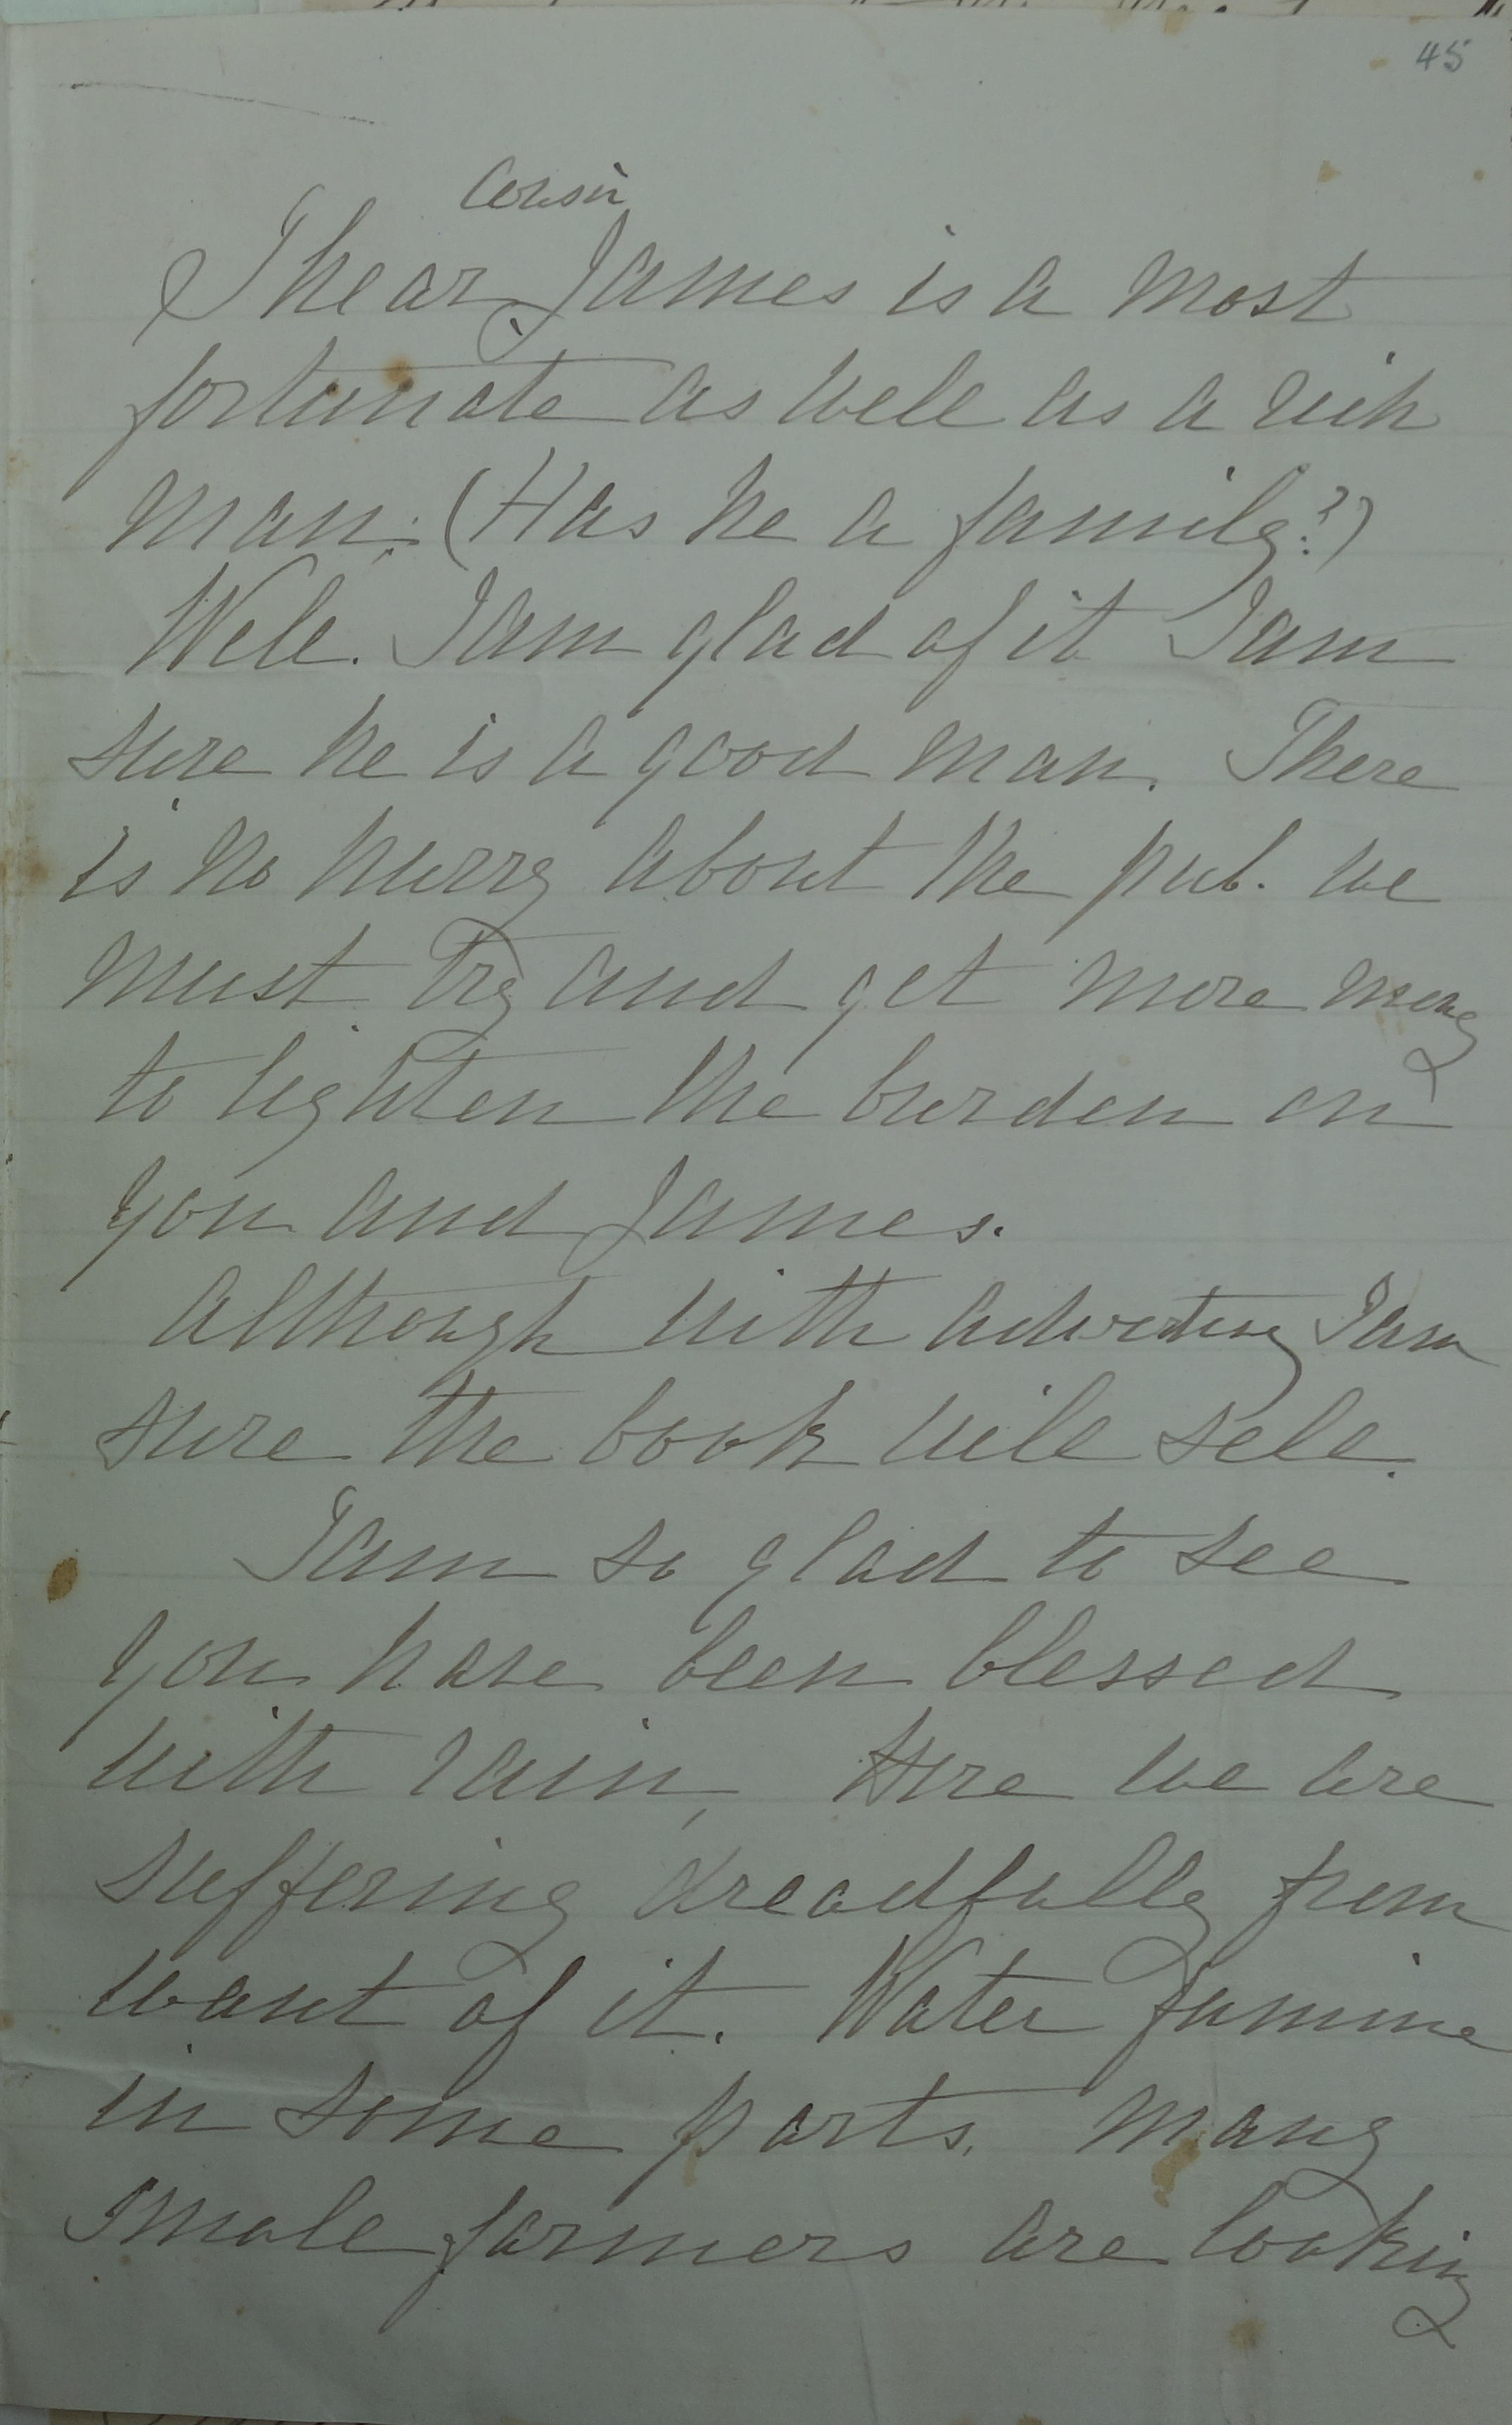 45
Cousin
I hear James is a most
fortunate as well as a rich
man. (Has he a family?)
Well. I am glad of it I am
sure he is a good man. There
is no hurry about the pub. we
must try and get more money
to lighten the burden on
you and James.
Although with advertising I am
sure the book will sell.
I am so glad to see
you have been blessed
with rain, Here we are
suffering dreadfully from
want of it. Water famine
in some parts. Many
small farmers are looking